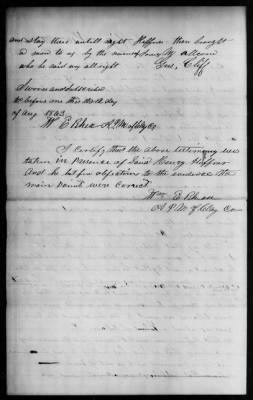 and stay there untill night Heffner then brought
a man to us by the name of James M
who he said was all right Geo, Cliff
Sworn and subscribed
to before me this the day
of Aug 1863
W. E. Rhea A. P. M of Clay Co
I certify that the above testimony was
taken in presence of Said Henry Heffner
and he had no objection to the evidence the
main points were correct
Wm E. Rhea
A P. M of Clay Co